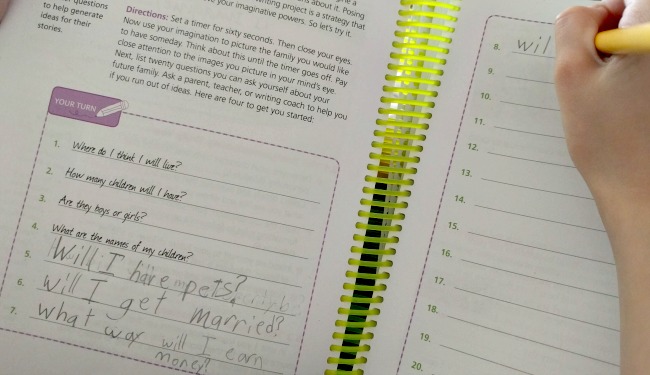 questions
to help generate
ideas for their
stories.
about it. Posing
writing project is a strategy that
your imaginative powers. So let's try it.
Directions: Set a timer for sixty seconds. Then close your eyes.
Now use your imagination to picture the family you would like
to have someday. Think about this until the timer goes off. Pay
close attention to the images you picture in your mind's eye.
Next, list twenty questions you can ask yourself about your
future family. Ask a parent, teacher, or writing coach to help you
if you run out of ideas. Here are four to get you started:
YOUR TURN
1. Where do I think I will live?
2. How many children will I have?
3. Are they boys or girls?
4. What are the names of my children?
5. Will I have pets?
6. Will I get married?
7. What way will I earn
money?
8. wil
9.
10.
11.
12.
13.
14.
15.
16.
17.
18.
19.
20.